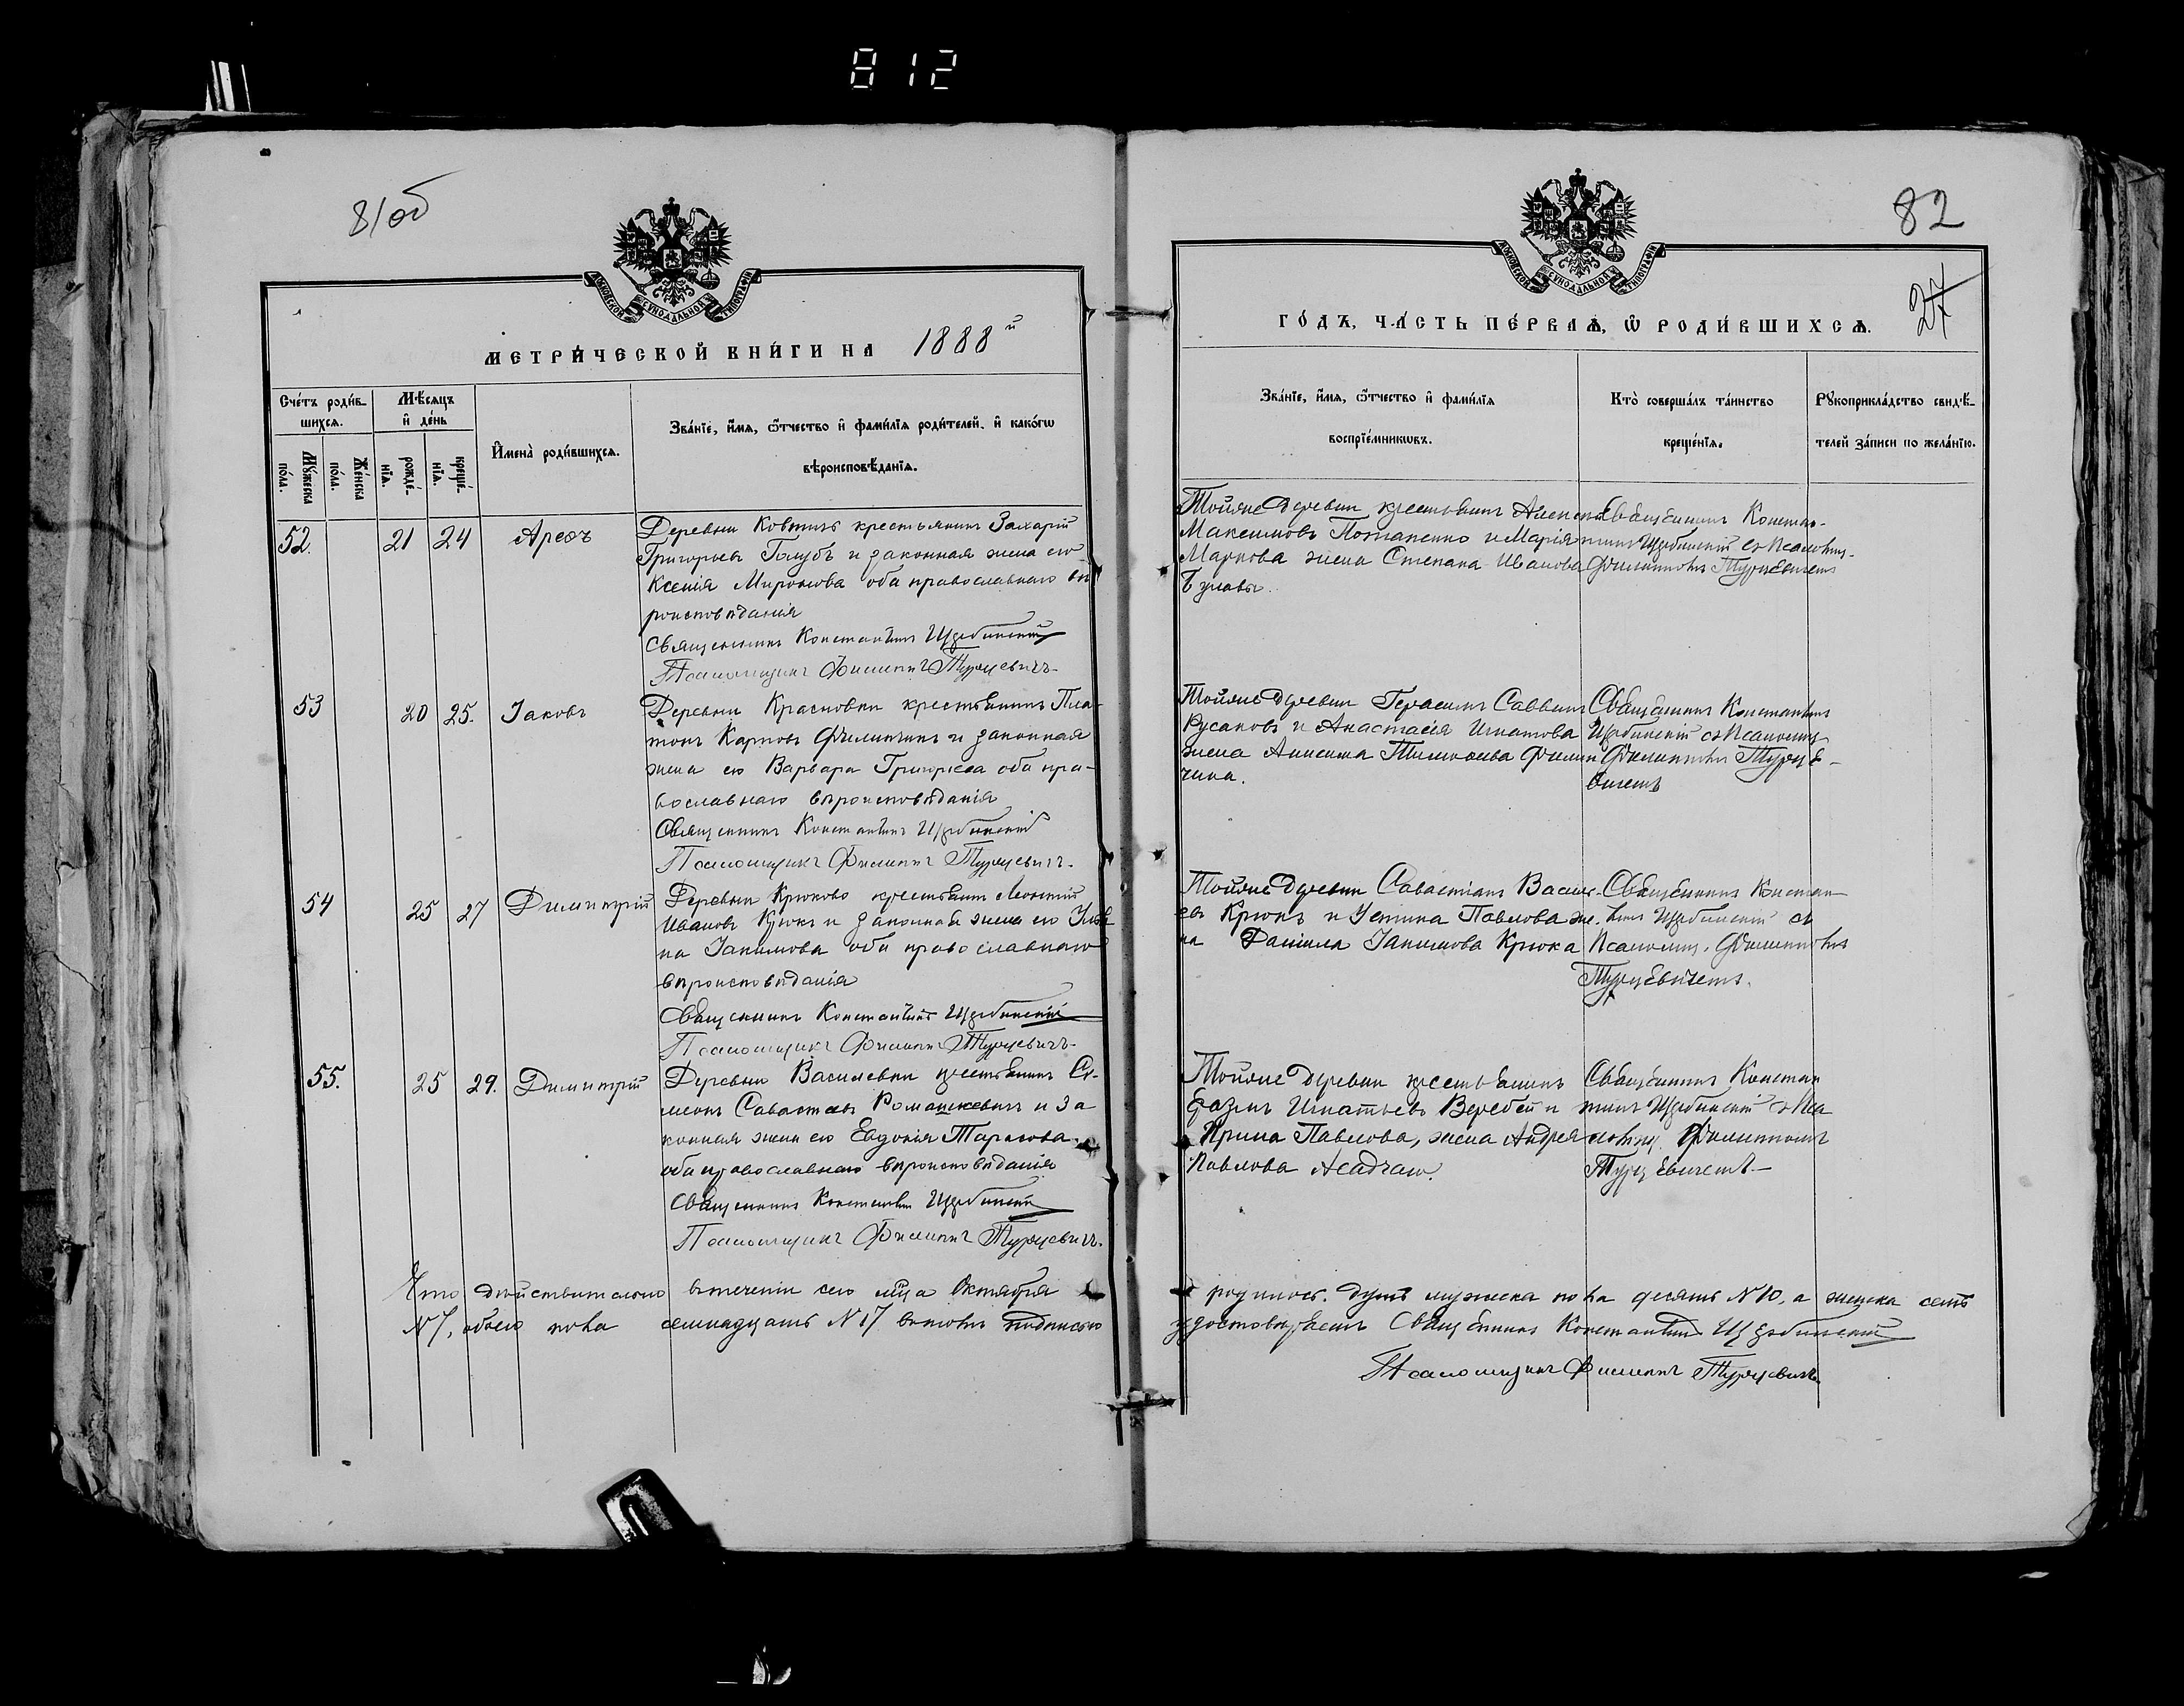 812
81об
МОСКОВСКОЙ СУНОДАЛЬНОЙ ТИПОГРАФІИ
МЕТРИ́ЧЕСКОЙ КНИ́ГИ НА 1888й
Сче́тъ роди́вшихсѧ.
Мꙋ́жеска по́ла.
Же́нска по́ла.
Мѣ́сѧцъ и҆ де́нь
рожде́нїѧ.
креще́нїѧ.
И҆мена̀ роди́вшихсѧ.
Зва́нїе, и҆́мѧ, ѻ҆́тчество и҆ фами́лїѧ роди́телей, и҆ како́гѡ
вѣроисповѣ́данїѧ.
52. 21 24 Арефъ
Деревни Ковтичъ крестьянинъ Захарій
Григорьевъ Голубъ и законная жена его
Ксенія Миронова оба православнаго вѣ
роисповѣданія
Священникъ Константинъ Щербинскій
Псаломщикъ Филиппъ Турцевичъ.
53 20 25. Іаковъ
Деревни Красновки крестьянинъ Пла-
тонъ Карповъ Филипчикъ и законная
жена его Варвара Григорьева оба пра-
вославнаго вѣроисповѣданія
Священникъ Константинъ Щербинскій
Псаломщикъ Филиппъ Турцевичъ.
54 25 27 Димитрій
Деревни Крюково крестьянинъ Леонтій
Ивановъ Крюкъ и законная жена его
на Іакимова оба православнаго
вѣроисповѣданія
Священникъ Константинъ Щербинскій
Псаломщикъ Филиппъ Турцевичъ.
55. 25 29. Димитрій
Деревни Василевки крестьянинъ Си-
меонъ Савастеевъ Романкевичъ и за
конная жена его Евдокія Тарасова
оба православнаго вѣроисповѣданія
Священникъ Константинъ Щербинскій
Псаломщикъ Филиппъ Турцевичъ.
Что дѣйствительно втеченіи сего мѣца Октября
N7, обоего пола семнадцать N17 втомъ подписью
82
27
МОСКОВСКОЙ СУНОДАЛЬНОЙ ТИПОГРАФІИ
ГО́ДЪ, ЧА́СТЬ ПЕ́РВАѦ, Ѡ҆ РОДИ́ВШИХСѦ.
Зва́нїе, и҆́мѧ, ѻ҆́тчество и҆ фами́лїѧ
воспрїе́мникѡвъ.
Кто̀ соверша́лъ та́инство
креще́нїѧ.
Рꙋкоприкла́дство свидѣ́-
телей за́писи по жела́нїю.
Тойже деревни крестьянинъ
Максимовъ Потапенко и Марія
Маркова жена Степана Иванова
Булавы.
Священникъ Констан-
тинъ Щербинскій съ Псаломщ.
Филиппомъ Турцевичемъ
Тойже деревни Герасимъ Саввинъ
Русаковъ и Анастасія Игнатова
жена Анисима Тимофеева Филип
чика.
Священникъ Константинъ
Щербинскій съ Псаломщ.
Филиппомъ Турце-
вичемъ
Тойже деревни Савастіанъ Васил-
евъ Крюкъ и Устина Павлова же-
на Даніила Іакимова Крюка
Священникъ Констан-
тинъ Щербинскій съ
Псаломщ. Филиппомъ
Турцевичемъ.
Тойже деревни крестьянинъ
Игнатьевъ Веребей и
Ирина Павлова, жена Андрея
Павлова Асадчаго.
Священникъ Констан
тинъ Щербинскій съ Пса
ломщ. Филиппомъ
Турцевичемъ.
родилось душъ мужеска пола десять N10, а женска семь
удостовѣряемъ Священникъ Константинъ Щербинскій
Псаломщикъ Филиппъ Турцевичъ.